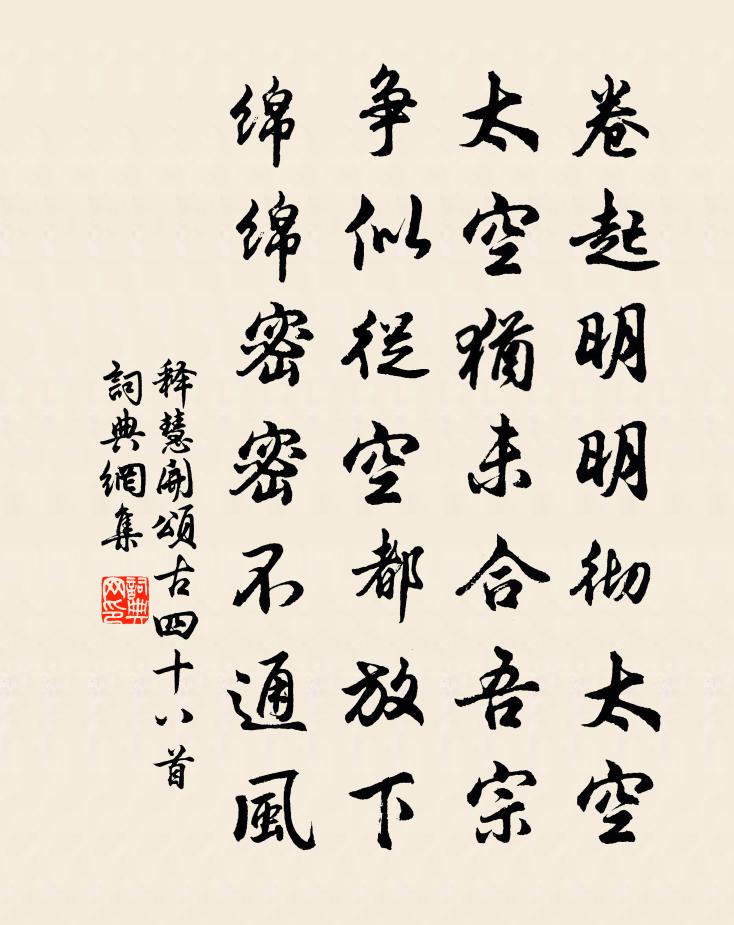 卷起明明彻太空
太空猶未合吾宗
争似從空都放下
绵绵密密不通風
释慧開頌古四十八首
詞典網集
詞典網印